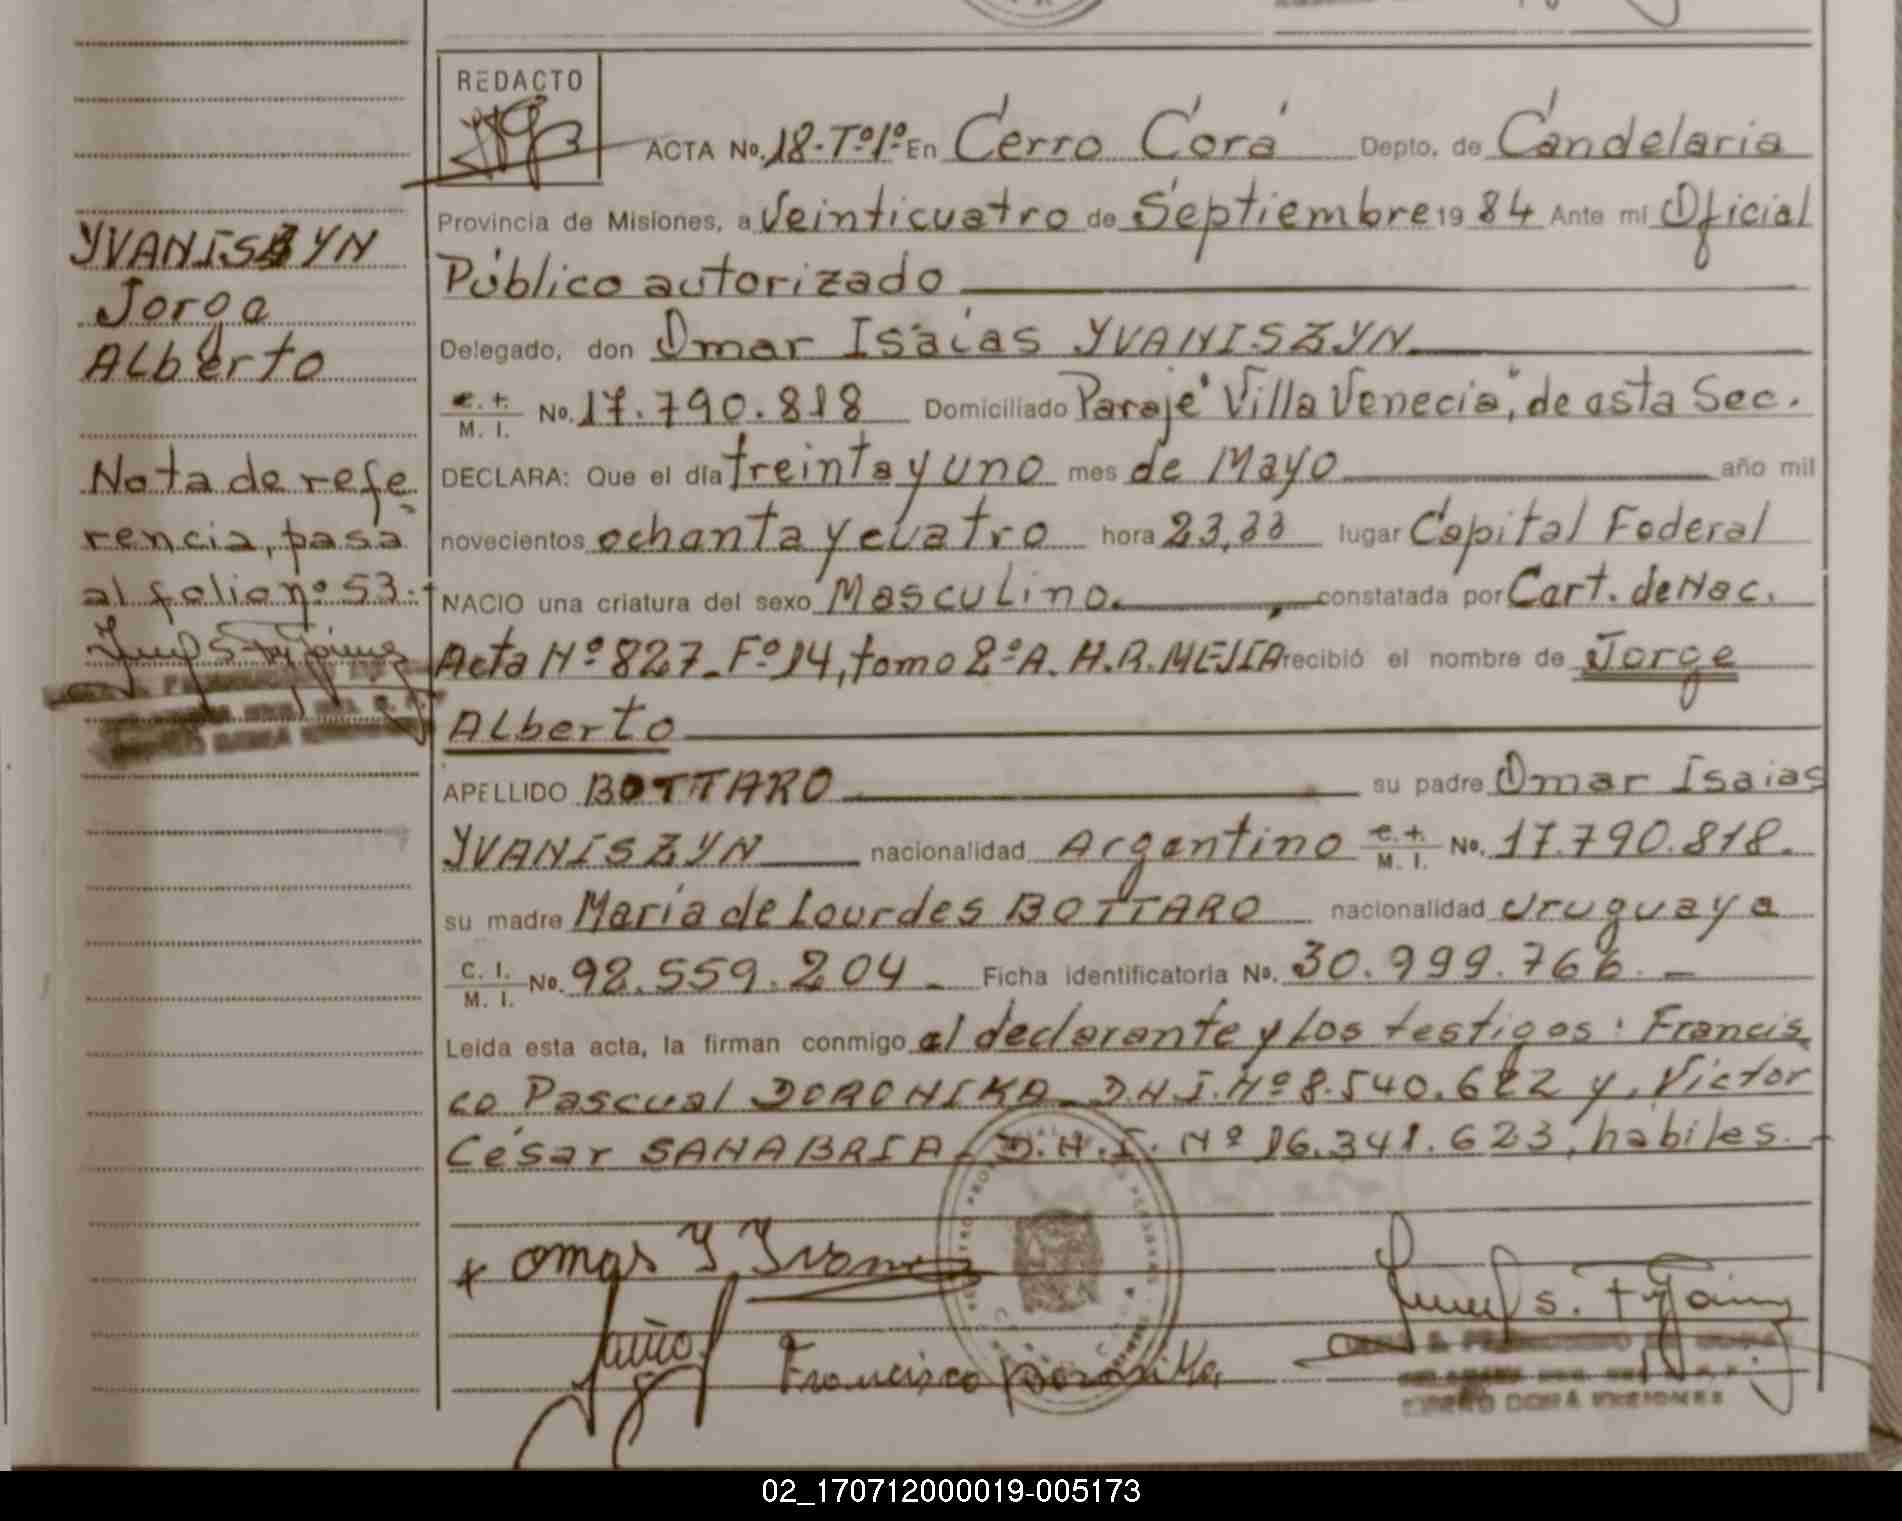 REDACTO
ACTA No. 18-Tº1º En Cerro Corá Depto. de Candelaria
Provincia de Misiones, a Veinticuatro de Septiembre 19 84 Ante mi Oficial
Público autorizado
Delegado, don Omar Isaías YVANISZYN
M. I. No. 17.790.818 Domiciliado Paraje "Villa Venecia", de esta Sec.
DECLARA: Que el día treinta y uno mes de Mayo año mil
novecientos ochenta y cuatro hora 23,33 lugar Capital Federal
NACIO una criatura del sexo Masculino. constatada por Cert. de Nac.
Acta Nº 827-Fº14, tomo 2º A. H.R. MEJIA recibió el nombre de Jorge
Alberto
APELLIDO BOTTARO su padre Omar Isaias
YVANISZYN nacionalidad Argentino M. I. No. 17.790.818.
su madre María de Lourdes BOTTARO nacionalidad Uruguaya
C. I. M. I. No. 92.559.204- Ficha identificatoria No. 30.999.766.-
Leida esta acta, la firman conmigo el declarante y los testigos: Francis
co Pascual DORONIKA D.N.I. Nº 8.540.622 y, Victor
César SANABRIA- D.N.I. Nº 16.341.623, hábiles.-
Francisco Doronika
YVANISZYN
Jorge
Alberto
Nota de refe
rencia, pasa
al folio nº 53.
02_170712000019-005173